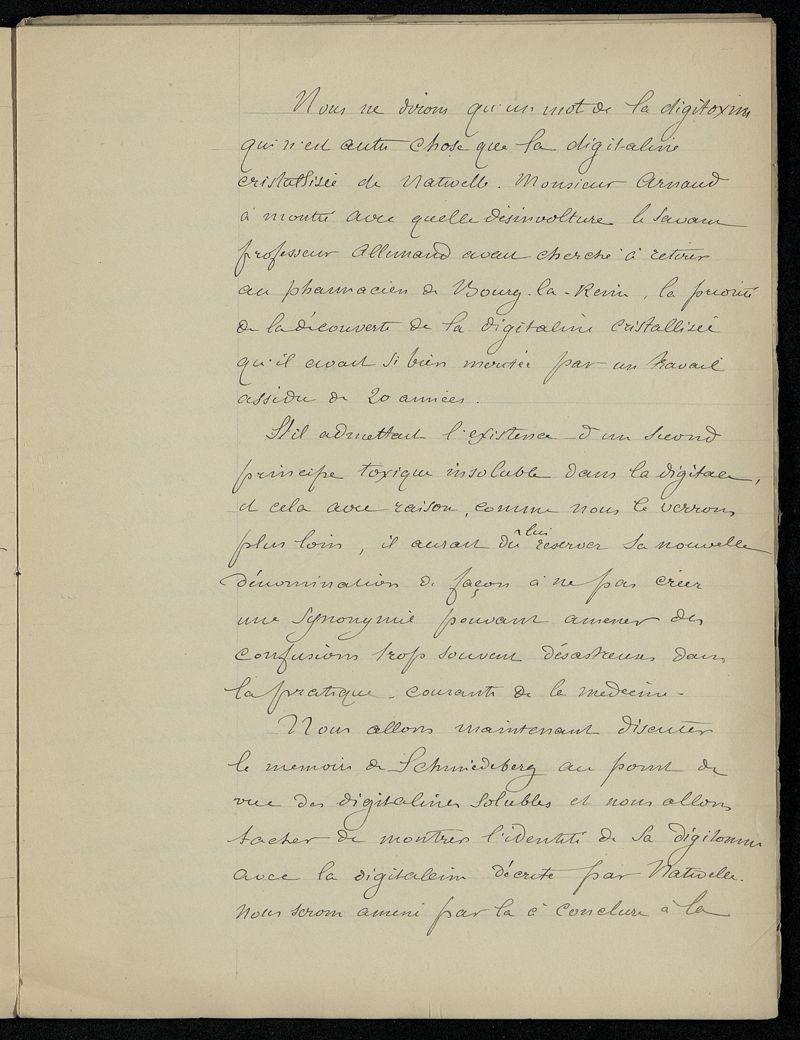 Nous ne dirons qu'un mot de la digitoxine
qui n'est autre chose que la digitaline
cristallisée de Nativelle. Monsieur Arnaud
à montré avec quelle désinvolture le savant
professeur Allemand avait cherché à retirer
au pharmacien de Bourg-la-Reine, la priorité
de la découverte de la digitaline cristallisée
qu'il avait si bien méritée par un travail
assidu de 20 années.
S'il admettait l'existence d'un second
principe toxique insoluble dans la digitale,
et cela avec raison, comme nous le verrons
plus loin, il aurait dû lui réserver sa nouvelle
dénomination de façon à ne pas créer
une synonymie pouvant amener des
confusions trop souvent désastreuses dans
la pratique courante de la médecine.
Nous allons maintenant discuter
le mémoire de Schmiedeberg au point de
vue des digitalines solubles et nous allons
tacher de montrer l'identité de sa digitonine
avec la digitaleine décrite par Nativelle.
Nous serons amené par la à conclure à la